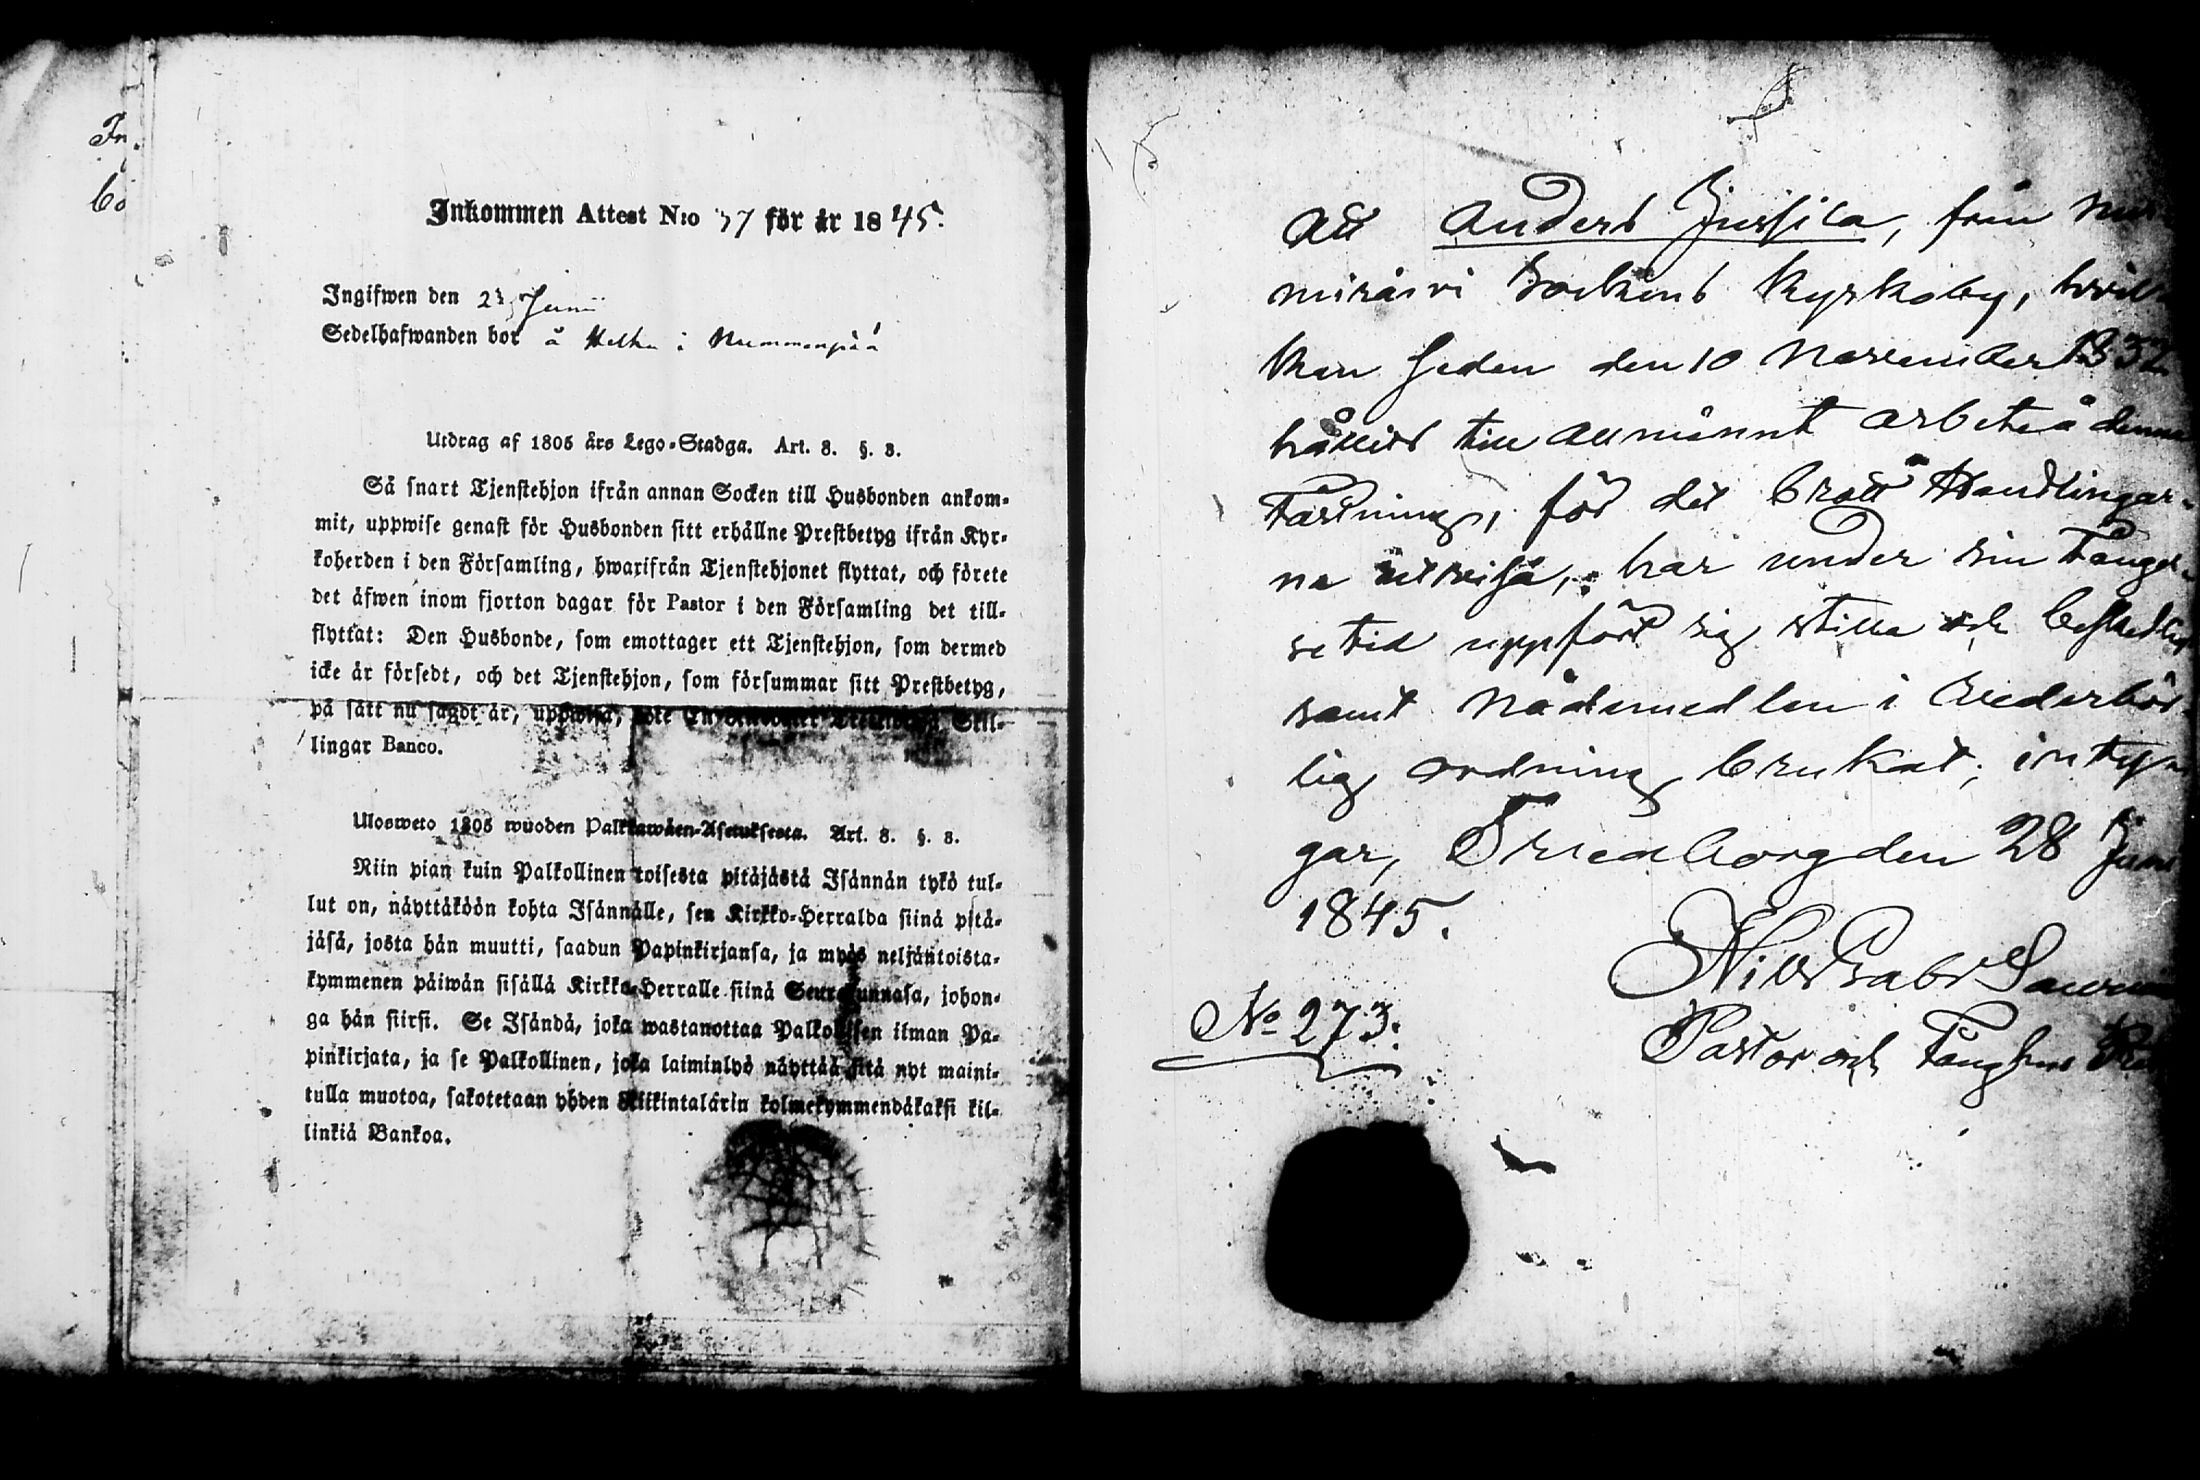 In
bö
Inkommen Attest N:o 37 för år 1845.
Ingifwen den 23 Junii
Sedelhafwanden bor å i Nummenpää
Utdrag af 1805 års Lego-Stadga. Art. 8. §. 3.
Så snart Tjenstehjon ifrån annan Socken till Husbonden ankom-
mit, uppwise genast för Husbonden sitt erhållne Prestbetyg ifrån Kyr-
koherden i den Församling, hwarifrån Tjenstehjonet flyttat, och förete
det äfwen inom fjorton dagar för Pastor i den Församling det till-
flyttat: Den Husbonde, som emottager ett Tjenstehjon, som dermed
icke är försedt, och det Tjenstehjon, som försummar sitt Prestbetyg,
på sätt nu sagdt är, uppwisa, böte En Skil-
lingar Banco.
Ulosweto 1805 wuoden Palkkawäen-Asetuksesta. Art. 8. §. 3.
Niin pian kuin Palkollinen toisesta pitäjästä Isännän tykö tul-
lut on, näyttäköön kohta Isännälle, sen Kirkko-Herralda siinä pitä-
jäsä, josta hän muutti, saadun Papinkirjansa, ja myös neljäntoista-
kymmenen päiwän sisällä Kirkko-Herralle siinä Seurakunnasa, johon-
ga hän siirsi. Se Isändä, joka wastanottaa Palkollisen ilman Pa-
pinkirjata, ja se Palkollinen, joka laiminlyö näyttää sitä nyt maini-
tulla muotoa, sakotetaan yhden Riikintalärin kolmekymmendäkaksi kil-
linkiä Bankoa.
Att Anders Jussila, från Nur-
misärvi Sockens Kyrkoby, hvil-
ken sedan den 10 November 1832
hållits till allmännt arbete å denna
Fästning, för det brott Handlingar-
na utvisa, har under sin Fånge-
setid uppfört sig stilla och beskedligt
samt Nådemedlen i vederbör-
lig ordning brukat; inty-
gar, Sveaborg den 28 Juni
1845.
Nils Gabr
Pastor och Fånghus
No 273.